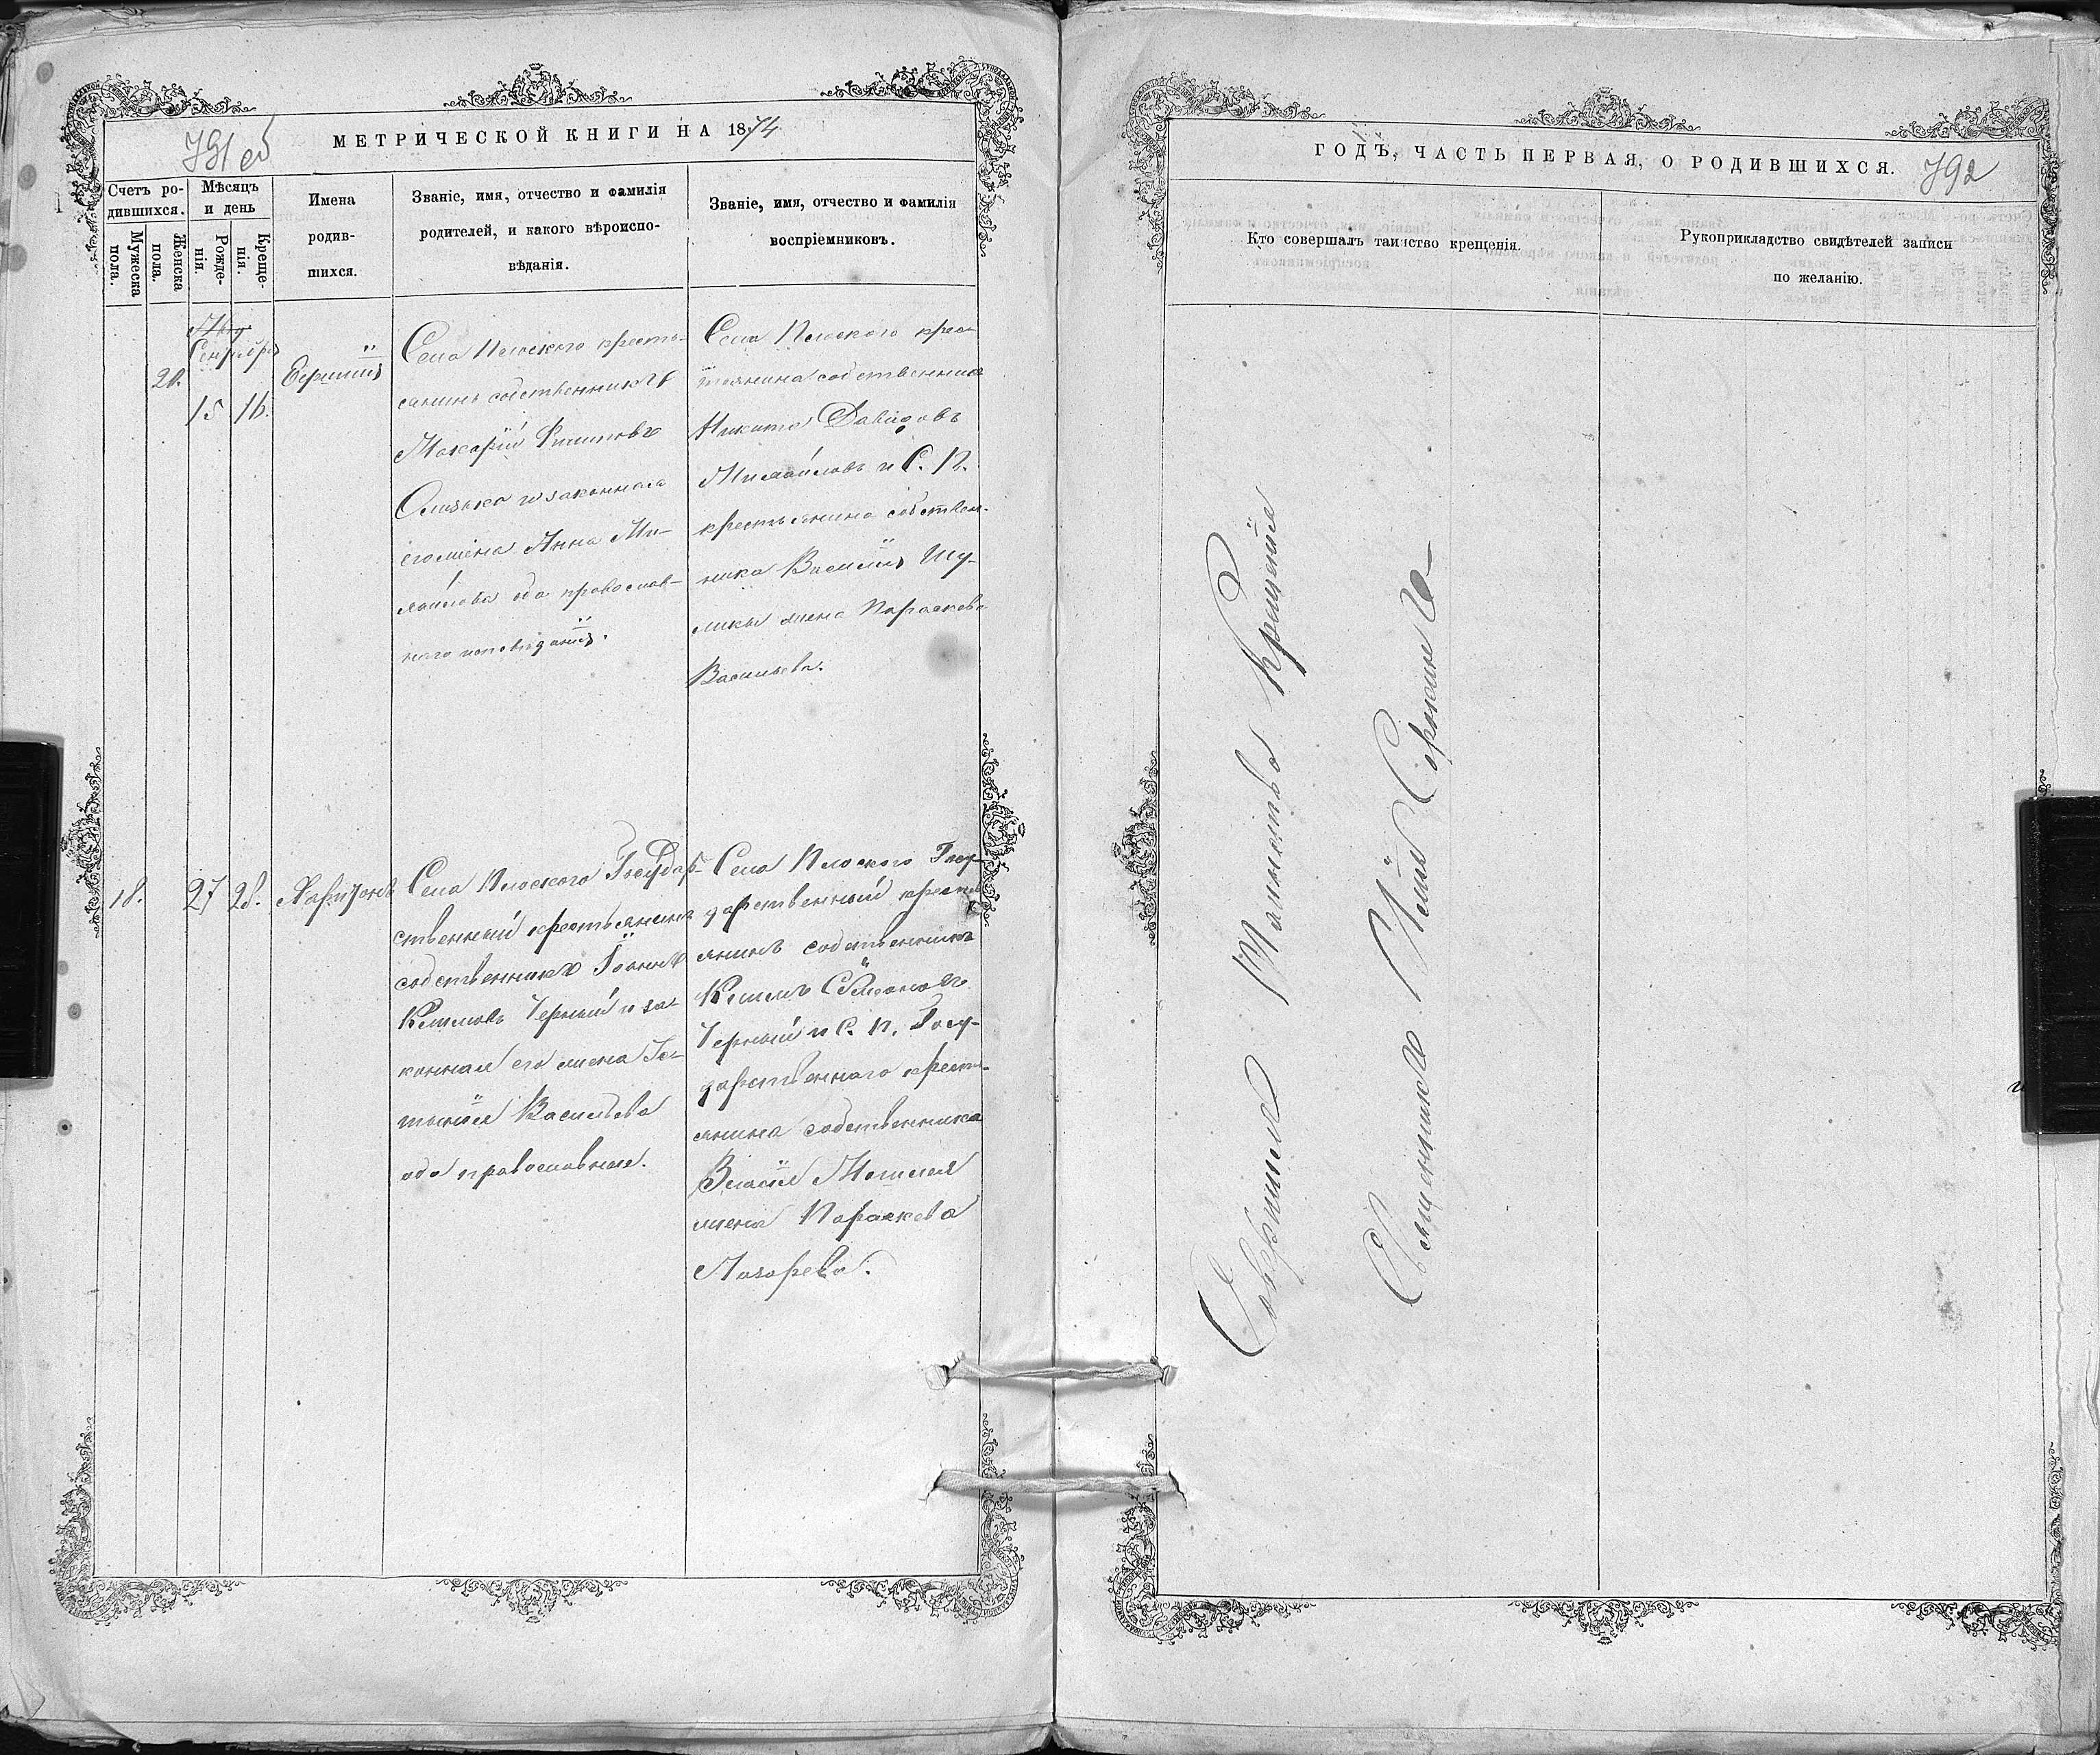 791 об
МЕТРИЧЕСКОЙ КНИГИ НА 1874
Счетъ ро-
дившихся.
Мужеска
пола.
Женска
пола.
Мѣсяцъ
и день
Рожде-
нія.
Креще-
нія.
Имена
родив-
шихся.
Званіе, имя, отчество и фамилія
родителей, и какого вѣроиспо-
вѣданія.
Званіе, имя, отчество и фамилія
воспріемниковъ.
Сентября
20.
15 16.
Села Плоского кресть-
янинъ собственникъ
Макарій Филиповъ
и законная
его жена Анна Ми-
хайлова оба православ-
наго исповѣданія.
Села Плоского крес-
тьянина собственника
Никита Давидовъ
Михайловъ и С. П.
крестьянина собствен-
ника Василія Шу-
лики жена Параскева
Васильева.
18. 27 28. Харитонъ
Села Плоского Государ-
ственный крестьянинъ
собственникъ Іоаннъ
Климовъ Черный и за-
конная его жена Та-
тіянія Васильева
оба православныя.
Села Плоского Госу-
дарственный кресть-
янинъ собственникъ
Климъ Семіоновъ
Черный и С. П. Госу-
дарственнаго кресть-
янина собственника
Власія
жена Параскева
Лазарева.
ГОДЪ, ЧАСТЬ ПЕРВАЯ, О РОДИВШИХСЯ.
792
Кто совершалъ таинство крещенія.
Рукоприкладство свидѣтелей записи
по желанію.
Совершилъ Таинство Крещенія
Священникъ